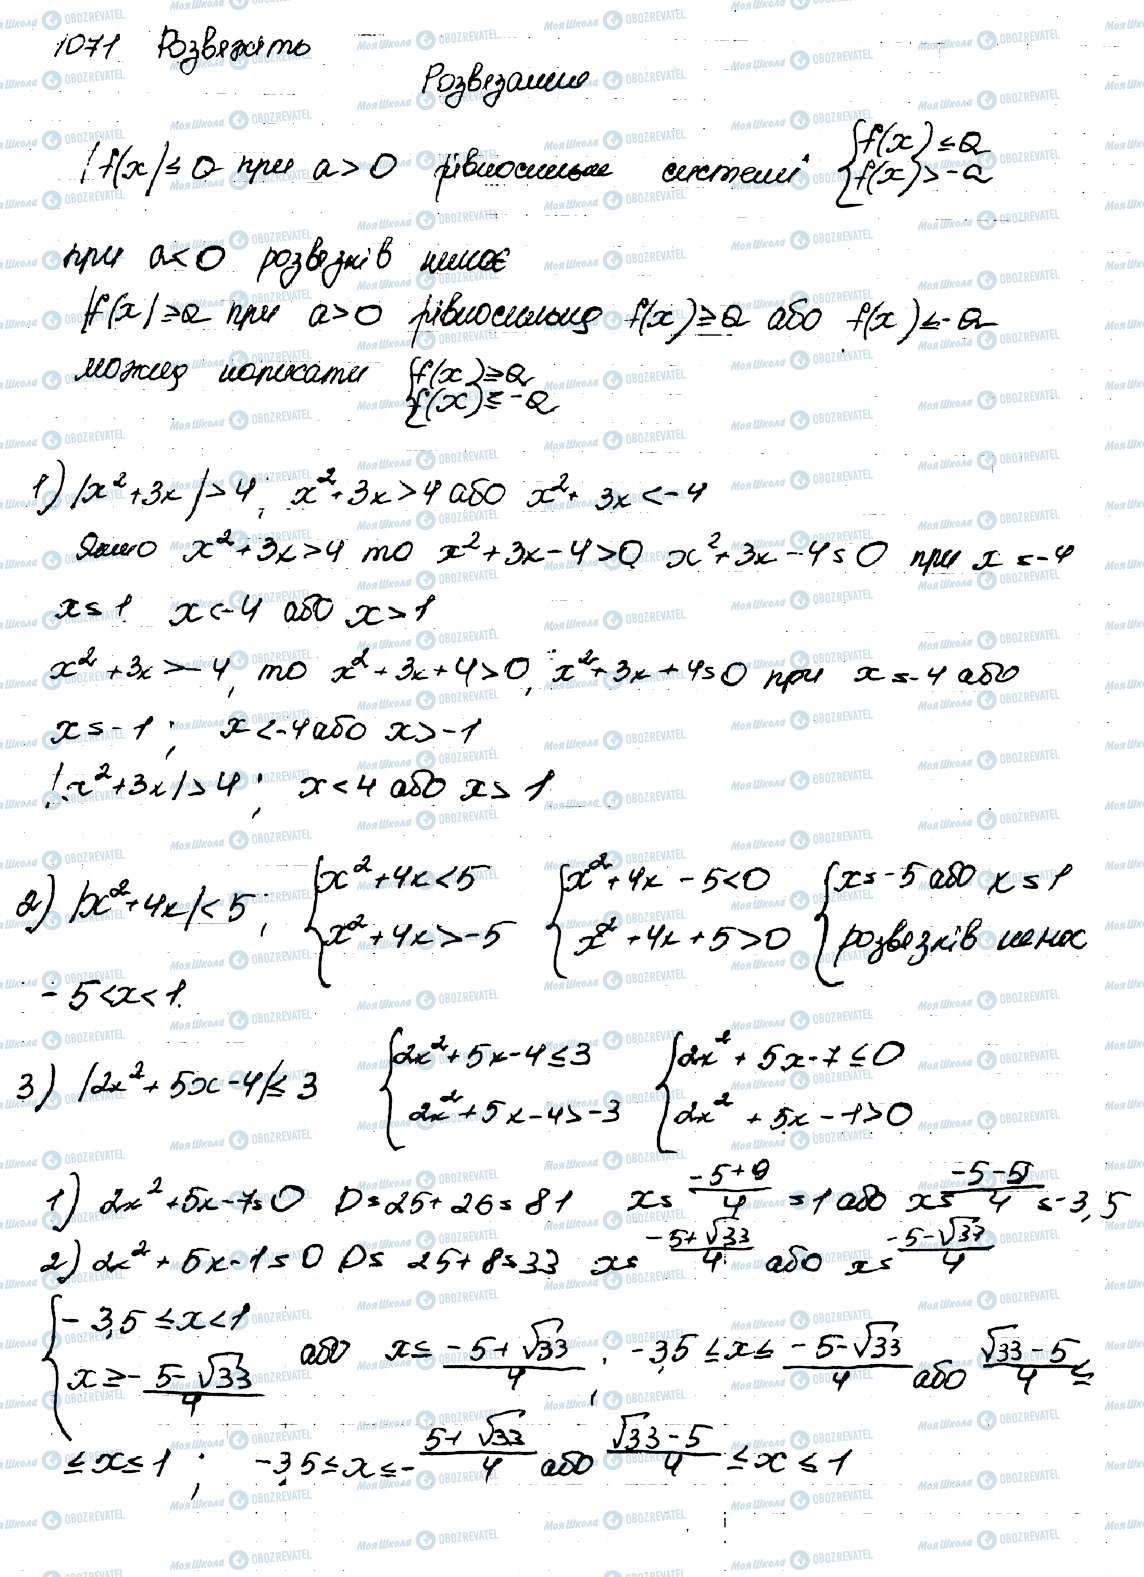 1071 Розвяжіть
Розвязание
|f(x)| ≤ a при a > 0 рівносильне системі { f(x) ≤ a
f(x) > -a
при a < 0 розвязків немає
|f(x)| ≥ a при a > 0 рівносильнд f(x) ≥ a або f(x) ≤ -a
можнд написати { f(x) ≥ a
f(x) ≤ -a
1) |x² + 3x| > 4; x² + 3x > 4 або x² + 3x < -4
Якшо x² + 3x > 4 то x² + 3x - 4 > 0 x² + 3x - 4 = 0 при x = -4
x = 1 x < -4 або x > 1
x² + 3x > -4, то x² + 3x + 4 > 0, x² + 3x + 4 = 0 при x = -4 або
x = -1; x < -4 або x > -1
|x² + 3x| > 4; x < 4 або x > 1
2) |x² + 4x| < 5; { x² + 4x < 5 { x² + 4x - 5 < 0 { x = -5 або x = 1
x² + 4x > -5 x² + 4x + 5 > 0 розвязків немає
-5 < x < 1.
3) |2x² + 5x - 4| ≤ 3 { 2x² + 5x - 4 ≤ 3 { 2x² + 5x - 7 ≤ 0
2x² + 5x - 4 > -3 2x² + 5x - 1 > 0
1) 2x² + 5x - 7 = 0 D = 25 + 26 = 81 x = (-5+9)/4 = 1 або x = (-5-5)/4 = -3,5
2) 2x² + 5x - 1 = 0 D = 25 + 8 = 33 x = (-5+√33)/4 або x = (-5-√33)/4
{ -3,5 ≤ x < 1
x ≥ -(5-√33)/4 або x ≤ (-5+√33)/4; -3,5 ≤ x ≤ (-5-√33)/4 або (√33-5)/4 ≤
≤ x ≤ 1; -3,5 ≤ x ≤ -(5+√33)/4 або (√33-5)/4 ≤ x ≤ 1
МояШкола OBOZREVATEL